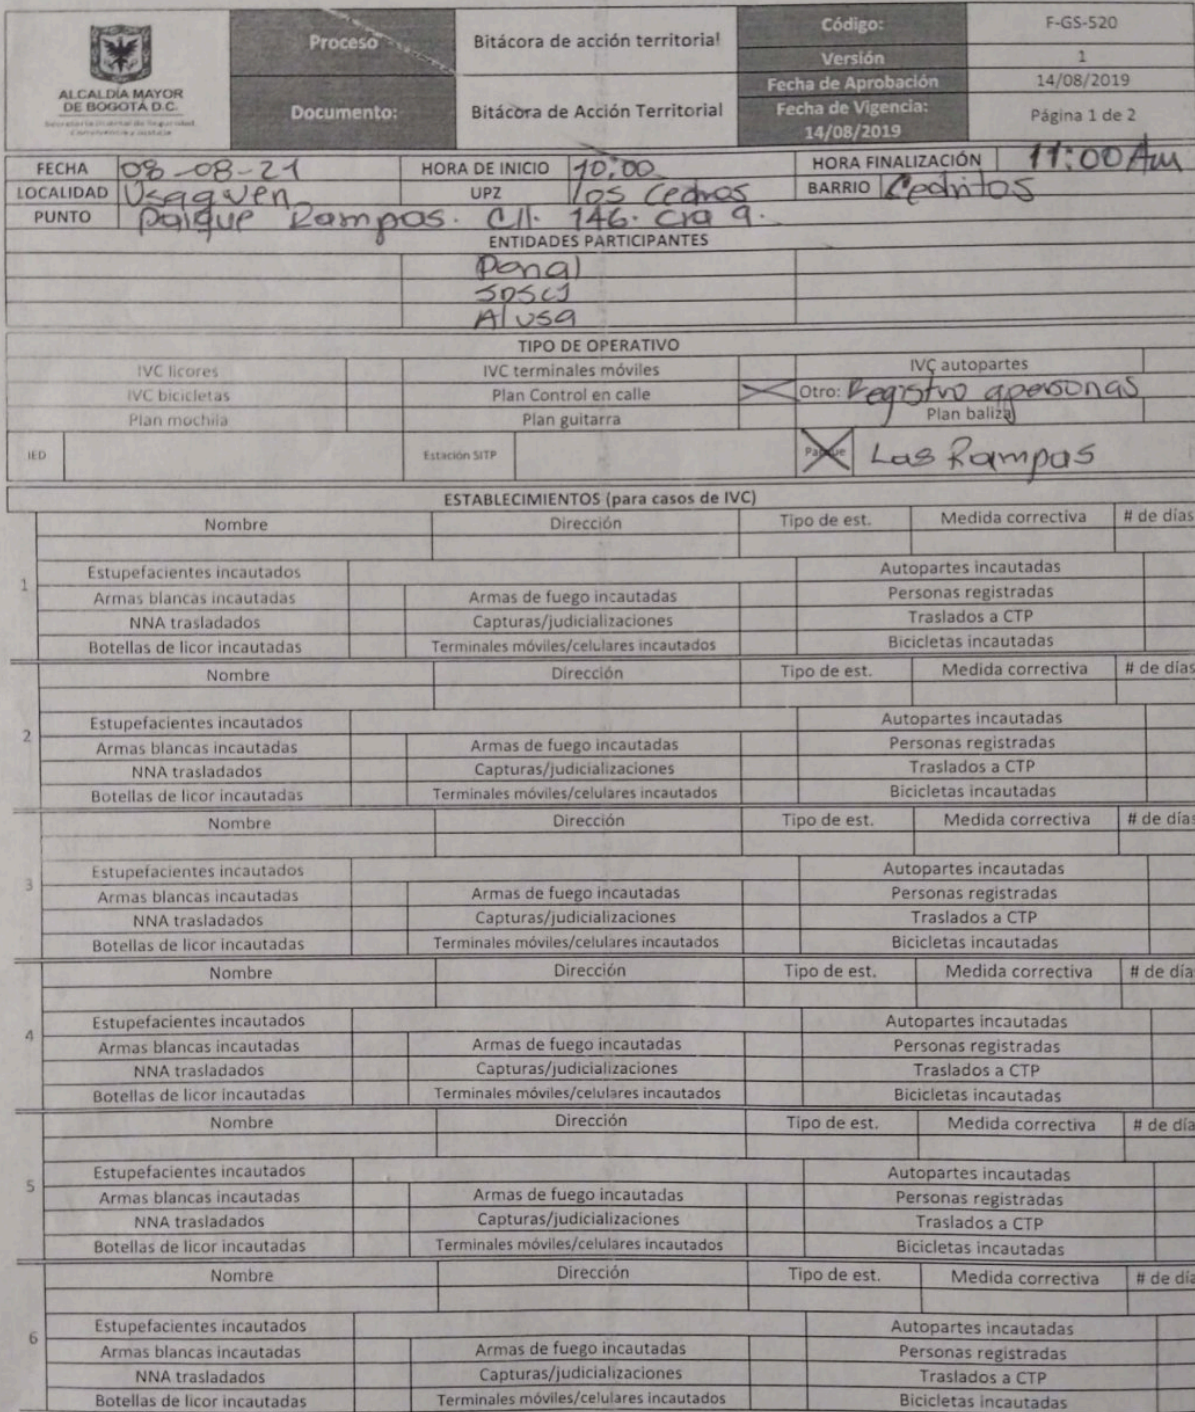 Proceso
Bitácora de acción territorial
Código:
F-GS-520
Versión
1
ALCALDÍA MAYOR
DE BOGOTÁ D.C.
Documento:
Bitácora de Acción Territorial
Fecha de Aprobación
14/08/2019
Fecha de Vigencia:
14/08/2019
Página 1 de 2
FECHA 08-08-21 HORA DE INICIO 10:00 HORA FINALIZACIÓN 11:00 Am
LOCALIDAD Usaquen UPZ los Cedros BARRIO Cedritos
PUNTO Parque Rampas. Cll. 146. cra 9.
ENTIDADES PARTICIPANTES
Ponal
SDSCJ
Alusa
TIPO DE OPERATIVO
IVC licores IVC terminales móviles IVC autopartes
IVC bicicletas Plan Control en calle Otro: Registro apersonas
Plan mochila Plan guitarra Plan baliza
IED Estación SITP Parque Las Rampas
ESTABLECIMIENTOS (para casos de IVC)
Nombre Dirección Tipo de est. Medida correctiva # de días
1
Estupefacientes incautados Autopartes incautadas
Armas blancas incautadas Armas de fuego incautadas Personas registradas
NNA trasladados Capturas/judicializaciones Traslados a CTP
Botellas de licor incautadas Terminales móviles/celulares incautados Bicicletas incautadas
Nombre Dirección Tipo de est. Medida correctiva # de días
2
Estupefacientes incautados Autopartes incautadas
Armas blancas incautadas Armas de fuego incautadas Personas registradas
NNA trasladados Capturas/judicializaciones Traslados a CTP
Botellas de licor incautadas Terminales móviles/celulares incautados Bicicletas incautadas
Nombre Dirección Tipo de est. Medida correctiva # de días
3
Estupefacientes incautados Autopartes incautadas
Armas blancas incautadas Armas de fuego incautadas Personas registradas
NNA trasladados Capturas/judicializaciones Traslados a CTP
Botellas de licor incautadas Terminales móviles/celulares incautados Bicicletas incautadas
Nombre Dirección Tipo de est. Medida correctiva # de día
4
Estupefacientes incautados Autopartes incautadas
Armas blancas incautadas Armas de fuego incautadas Personas registradas
NNA trasladados Capturas/judicializaciones Traslados a CTP
Botellas de licor incautadas Terminales móviles/celulares incautados Bicicletas incautadas
Nombre Dirección Tipo de est. Medida correctiva # de día
5
Estupefacientes incautados Autopartes incautadas
Armas blancas incautadas Armas de fuego incautadas Personas registradas
NNA trasladados Capturas/judicializaciones Traslados a CTP
Botellas de licor incautadas Terminales móviles/celulares incautados Bicicletas incautadas
Nombre Dirección Tipo de est. Medida correctiva # de día
6
Estupefacientes incautados Autopartes incautadas
Armas blancas incautadas Armas de fuego incautadas Personas registradas
NNA trasladados Capturas/judicializaciones Traslados a CTP
Botellas de licor incautadas Terminales móviles/celulares incautados Bicicletas incautadas